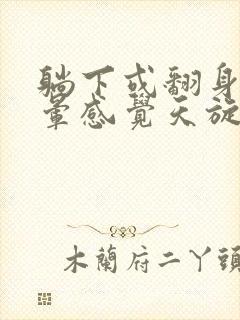 躺下或翻身
暈感覺天旋
木蘭府二丫頭